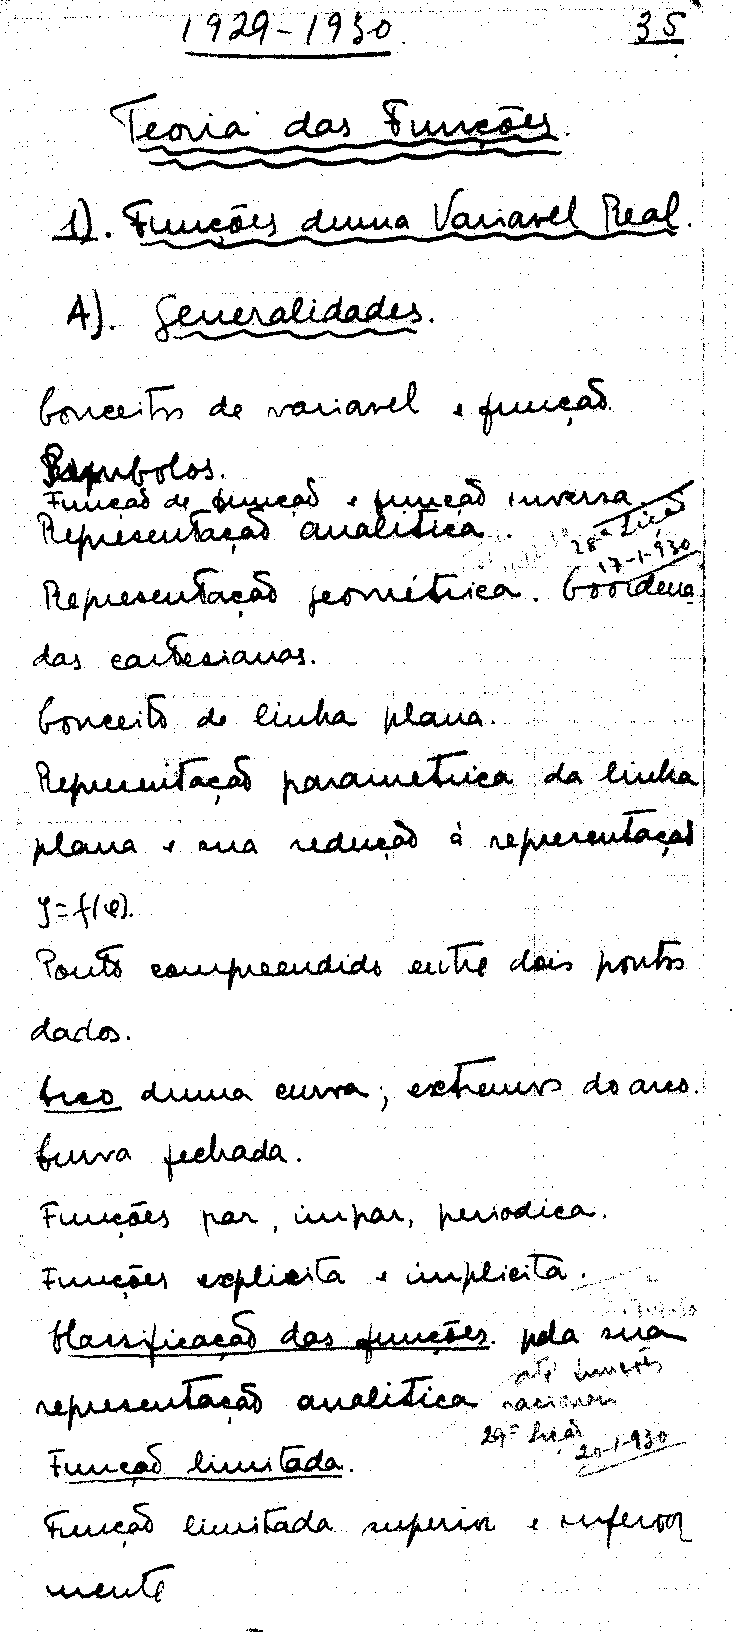 1929-1930. 35
Teoria das Funções.
1). Funções duma Variavel Real.
A). Generalidades.
Conceitos de variavel e função
Simbolos.
Função de função e função inversa.
Representação analitica.
28ª Lição
17-1-930
Representação geométrica. Coordena
das cartesianas.
Conceito de linha plana.
Representação parametrica da linha
plana e sua redução à representação
y=f(x).
Ponto compreendido entre dois pontos
dados.
Arco duma curva; extremos do arco.
Curva fechada.
Funções par, impar, periodica.
Funções explicita e implicita.
Classificação das funções pela sua
representação analitica
até funções
racionais
29ª lição
20-1-930
Função limitada.
Função limitada superior e inferior
mente